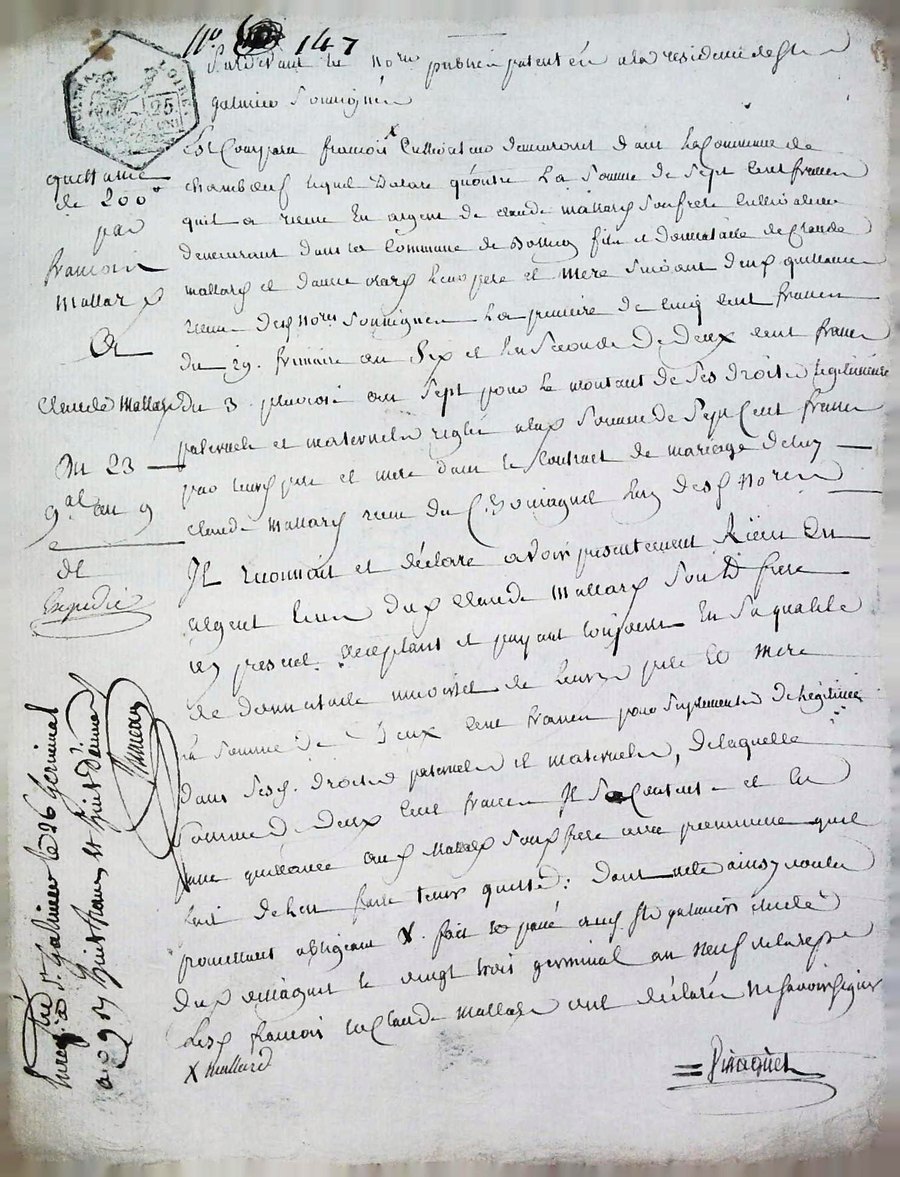 No 147
Pardevant le nore public patenté a la residence de St
galmier Soussigné
Est Comparu françois X Cultivateur demeurant dans la Commune de
chambœuf lequel Declare qu'outre La Somme de Sept Cent francs
quil a recue En argent de claude mallard Son frere Cultivateur
demeurant dans la Commune de fils et donnataire de Claude
mallard et leurs pere et mere Suivant deux quittances
recue desd nores Soussignés La premiere de Cinq Cent francs
du 29 frimaire an Six et La Seconde De deux Cent francs
du 3 pluviose an Sept pour le montant de Ses droits Legitimaires
paternels et maternels reglés a lad Somme de Sept Cent francs
par leurs pere et mere dans le Contract de mariage dudit
Claude Mallard recu du C. L'un desd Nores
Il reconnoit et déclare avoir presentement Recu En
argent dud Claude Mallard Son dt frere
icy present acceptant et payant toujours En Sa qualité
de donnataire universel de leurs pere Et mere
la Somme De Deux Cent francs pour Suplement de Légitime
dans Sesd. droits paternels et maternels, de laquelle
Somme De deux Cent francs Il Se Contente et En
passe quittance aud Mallard Sond frere avec promesse quil
lui de l'en faire tenir quitte: Dont acte ainsy voulu
promettant obligeant X. fait Et passé aud St galmier Etude
dud le vingt trois germinal an neuf de la rep
Lesd françois et Claude Mallard ont déclaré ne Savoir Signer
X Mallard
Pinaquet
quittance
de 200
par
francois
Mallard
A
Claude Mallard
Du 23
g.al an 9
Expedié
Enregé à St Galmier le 26 Germinal
an 9